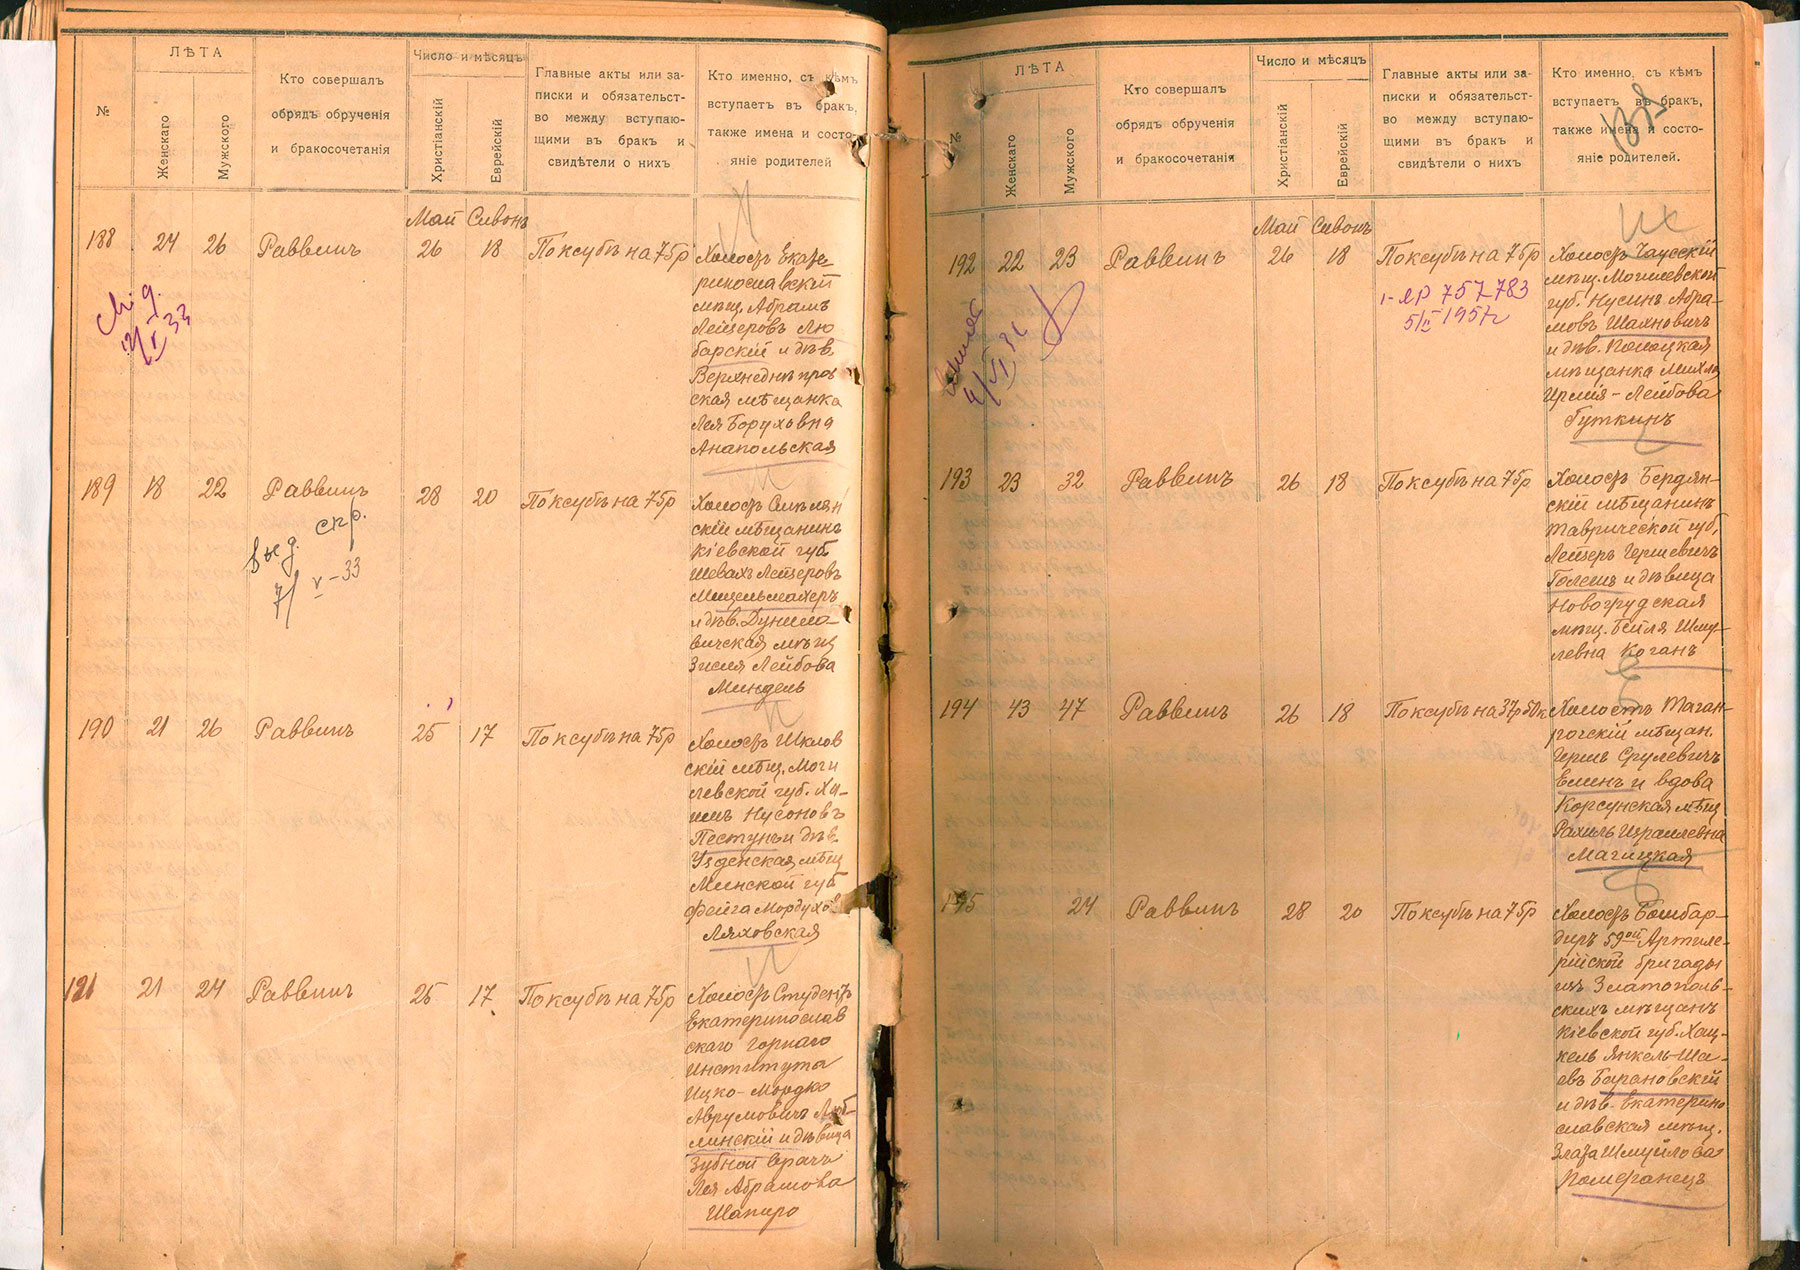 №
ЛѢТА
Женскаго
Мужского
Кто совершалъ
обрядъ обрученія
и бракосочетанія
Число и мѣсяцъ
Христіанскій
Еврейскій
Главные акты или за-
писки и обязательст-
во между вступаю-
щими въ бракъ и
свидѣтели о нихъ
Кто именно, съ кѣмъ
вступаетъ въ бракъ,
также имена и состо-
яніе родителей
Май Сивонъ
188 24 26 Раввинъ 26 18 По ксубѣ на 75р
Холостъ Екате
ринославскій
мѣщ. Абрамъ
Лейзеровъ Лю
барскій и дѣв.
Верхнеднѣпров
ская мѣщанка
Лея Боруховна
Анапольская
189 18 22 Раввинъ 28 20 По ксубѣ на 75р
выд. спр.
7/V-33
Холостъ Смѣлян
скій мѣщанинъ
Кіевской губ
Шевахъ Лейзеровъ
Мицельмахеръ
и дѣв. Дунило-
вичская мѣщ
Зисля Лейбова
Миндель
190 21 26 Раввинъ 25 17 По ксубѣ на 75р
Холостъ Шклов
скій мѣщ. Моги
левской губ. Ха-
имъ Нусоновъ
Пестунъ и дѣв
Узденская мѣщ
Минской губ
Фейга Мордухов
Ляховская
191 21 24 Раввинъ 25 17 По ксубѣ на 75р
Холостъ Студентъ
Екатеринослав
скаго горнаго
Института
Ицко-Мордко
Аврумовичъ Люб-
линскій и дѣвица
Зубной врачъ
Лея Абрамова
Шапиро
№
ЛѢТА
Женскаго
Мужского
Кто совершалъ
обрядъ обрученія
и бракосочетанія
Число и мѣсяцъ
Христіанскій
Еврейскій
Главные акты или за-
писки и обязательст-
во между вступаю-
щими въ бракъ и
свидѣтели о нихъ
Кто именно, съ кѣмъ
вступаетъ въ бракъ,
также имена и состо-
яніе родителей.
Май Сивонъ
192 22 23 Раввинъ 26 18 По ксубѣ на 75р
1-ЯР 757783
5/II 1957г
Холостъ Чаусскій
мѣщ. Могилевской
губ. Нусинъ Абра-
мовъ Шахновичъ
и дѣв. Полоцкая
мѣщанка Михля
Ирмія-Лейбова
Гуткинъ
193 23 32 Раввинъ 26 18 По ксубѣ на 75р
Холостъ Бердян-
скій мѣщанинъ
Таврической губ,
Лейзеръ Гершевичъ
Голешъ и дѣвица
Новогрудская
мѣщ. Бейля Шму-
левна Коганъ
194 43 47 Раввинъ 26 18 По ксубѣ на 37р 50к
Холостъ Таган-
рогскій мѣщан.
Гершъ Срулевичъ
Елинъ и вдова
Корсунская мѣщ
Рахиль Израилевна
Магицкая
195 24 Раввинъ 28 20 По ксубѣ на 75р
Холостъ Бомбар-
диръ 59ой Артиле-
рійской бригады
изъ Златополь-
скихъ мѣщанъ
Кіевской губ. Хац-
кель Янкель-Ша-
евъ Барановскій
и дѣв. Екатерино
славская мѣщ.
Злата Шмуйлова
Померанецъ